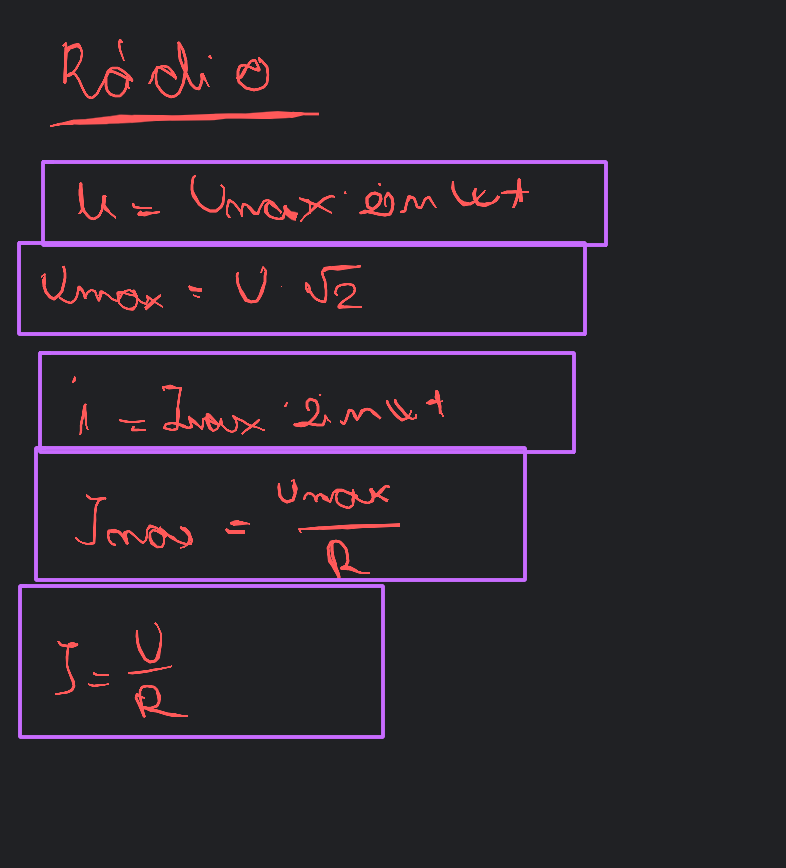 Ródio
u = Umax · sin ωt
Umax = U · √2
i = Imax · sin ωt
Imax = Umax / R
I = U / R